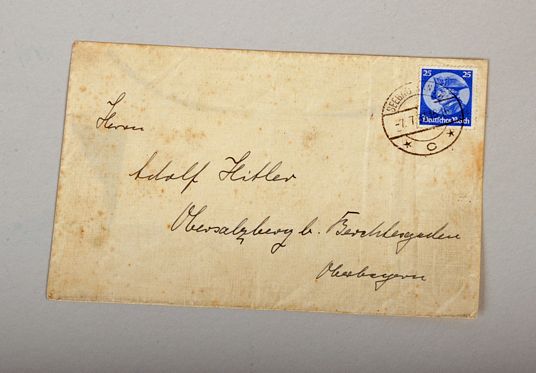 25 25
Deutsches Reich
Herrn
Adolf Hitler
Obersalzberg b. Berchtesgaden
Oberbayern